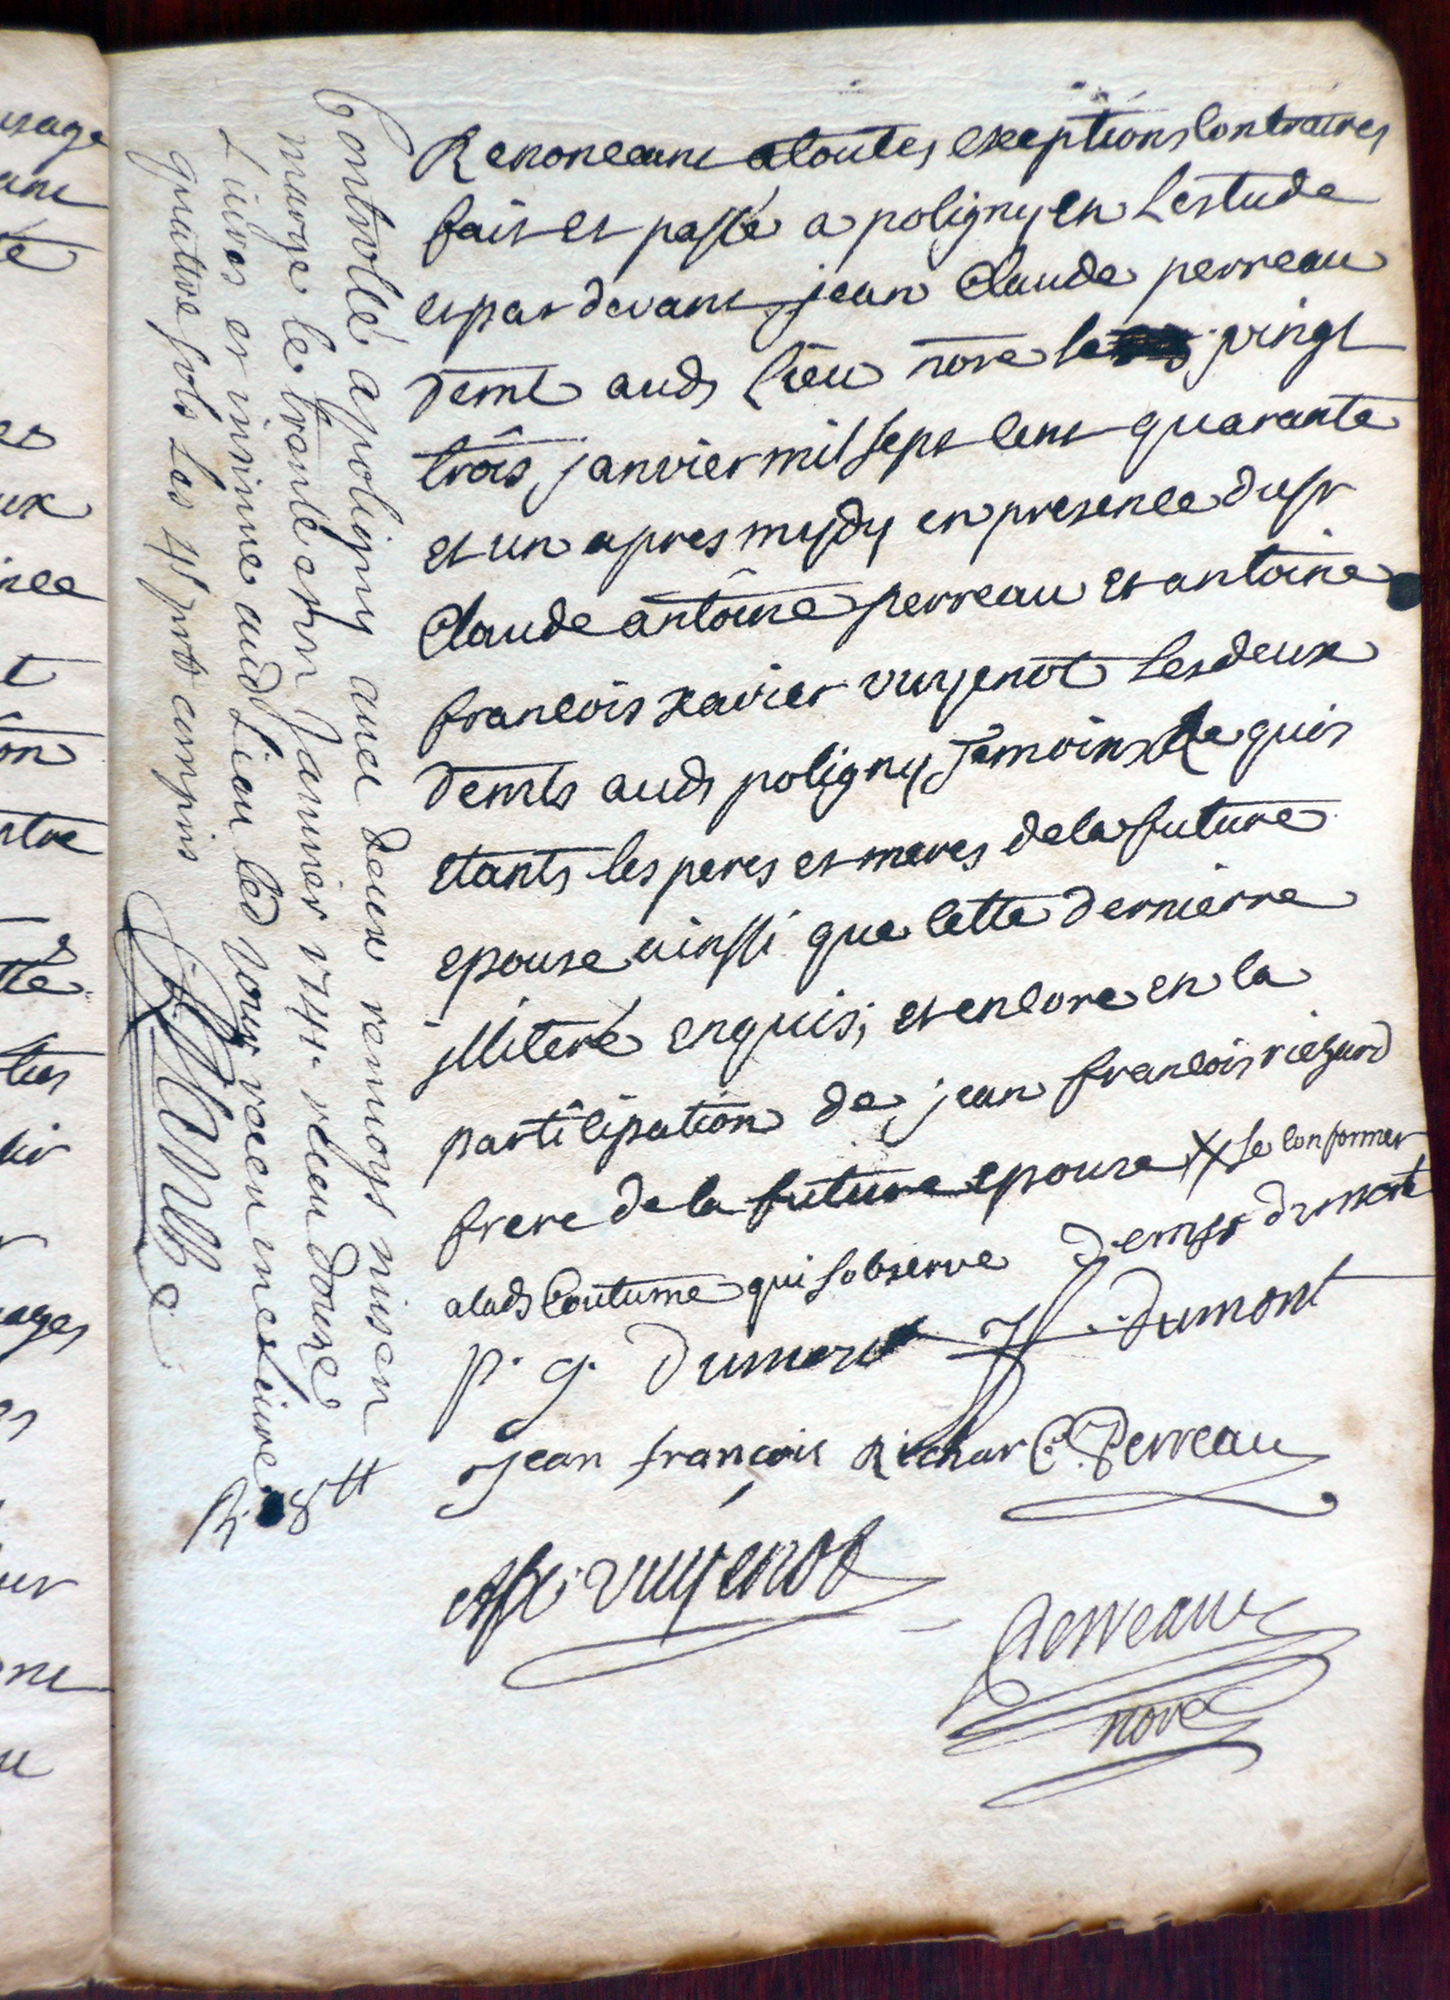 Renonceant a toutes exeptions contraires
fait et passé a poligny en Lestude
et par devant jean Claude perreau
demt aud lieu nore le vingt
trois janvier mil sept cent quarante
et un apres mydy en presence du sr
Claude antoine perreau et antoine
francois xavier vuyenot les deux
demts aud poligny temoins Requis
etants les peres et meres de la future
epouse ainssi que cette dernierre
jlliteré enquis, et encore en la
participation de jean francois richard
frere de la future epouse X se conformer
a lad Coutume qui sobserve
p. g. Dumont Dumont
jean françois Richar C. A. Perreau
Afx. vuyenot
Perreau
nore
Controllé a poligny avec deux renvoys mis en
marge le trente un Janvier 1741. receu douze
Livres et insinué aud Lieu led jour receu une Livre
quattre sols Les 4s pr tt compris
R. 8tt
usage
ant
té
ux
nce
t
on
utre
tte
ur